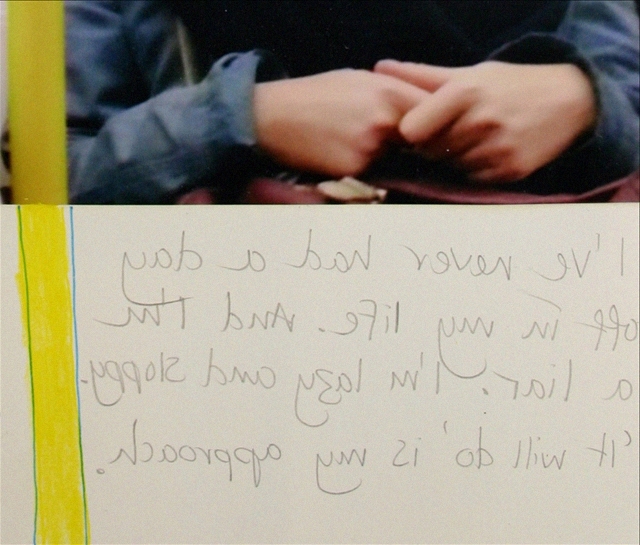 I've never had a day
off in my life. And I'm
a liar. I'm lazy and sloppy.
'It will do' is my approach.